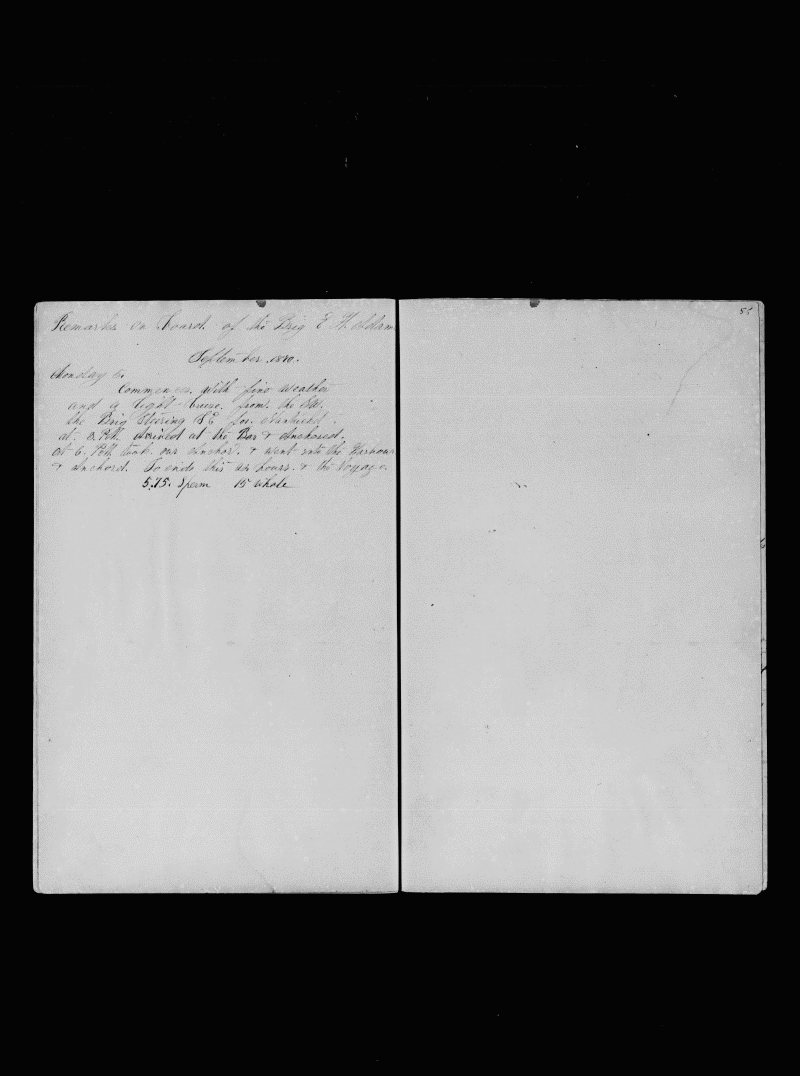 Remarks on board of the Brig E H Adams
September 1870.
Monday 5.
Commences with fine weather
and a light breeze from the SW.
the Brig Steering SE for Nantucket.
at 2 PM. Arrived at the Bar & Anchored.
at 6. PM took our Anchor. & went into the Harbour
& Anchord. So ends this six hours. & the Voyage.
575. Sperm 15 whale